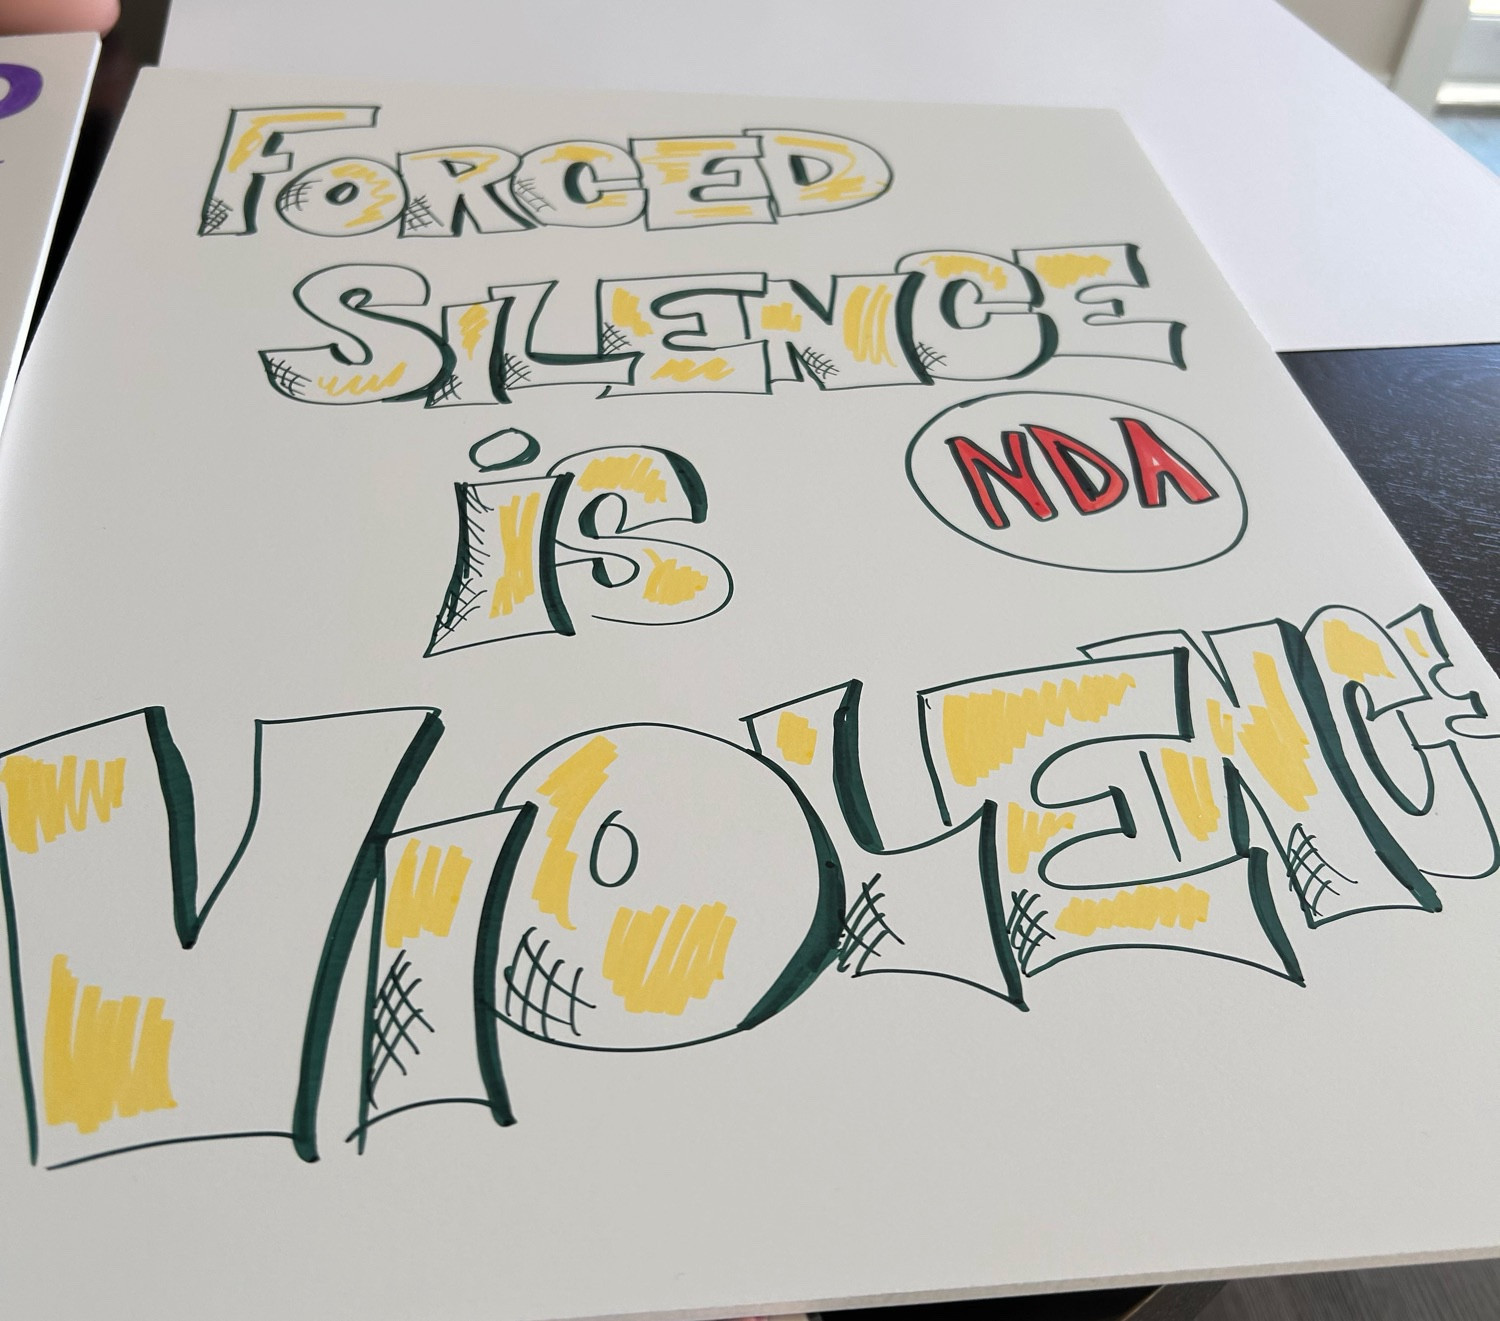 FORCED
SILENCE
is
NDA
VIOLENCE